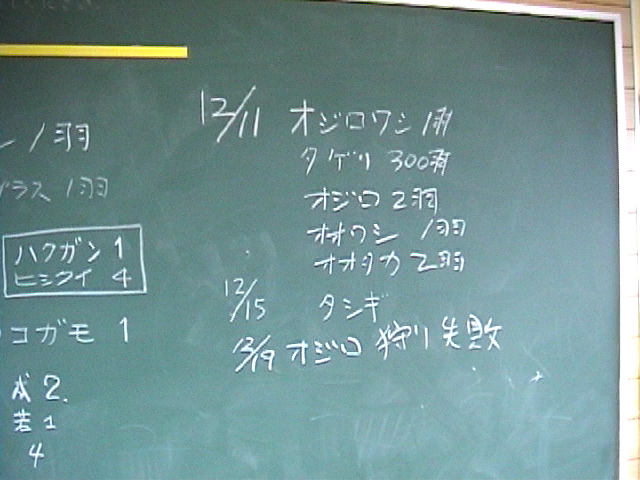 ン 1羽
ガラス 1羽
ハクガン 1
ヒシクイ 4
コガモ 1
成 2.
若 1
4
12/11 オジロワシ 1羽
タゲリ 300羽
オジロ 2羽
オオワシ 1羽
オオタカ 2羽
12/15 タシギ
12/19 オジロ 狩り 失敗